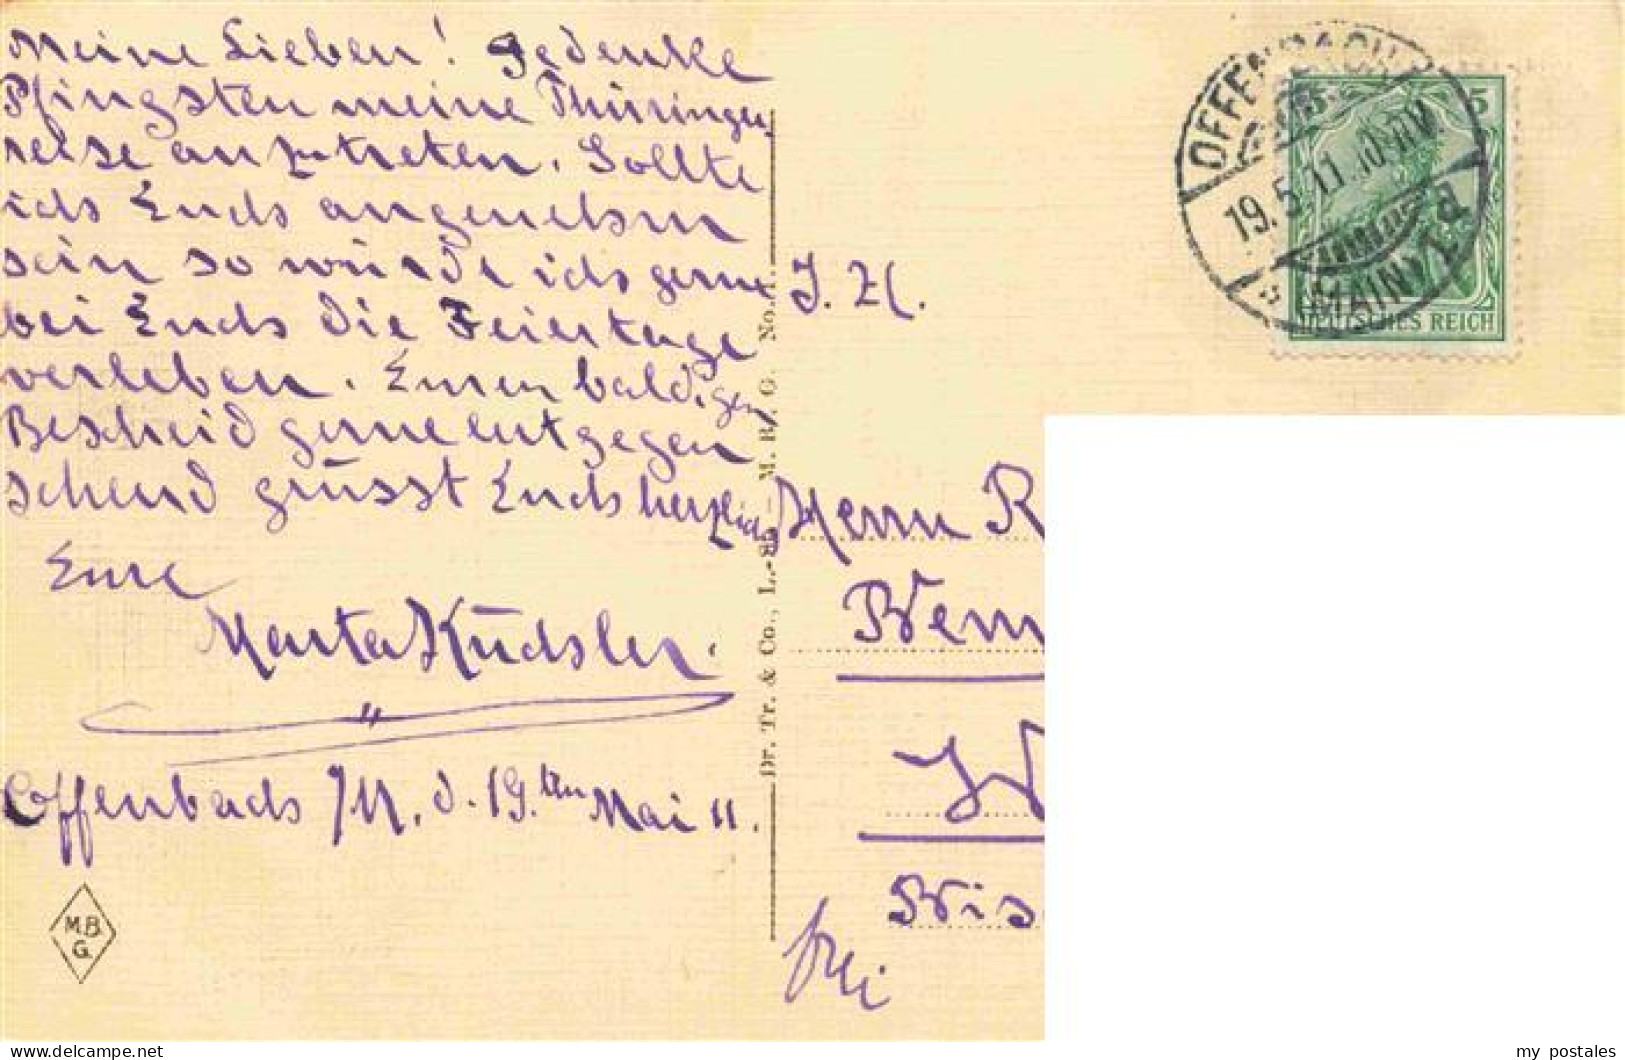 Meine Lieben! Gedenke
Pfingsten meine Thüringer
reise anzutreten. Sollte
ich Euch angenehm
sein so würde ich gerne
bei Euch die Feiertage
verleben. Euren baldigen
Bescheid gerne entgegen
sehend grüsst Euch herzlich
Eure
Marta Küchsler.
Offenbach /M. d. 19.ten Mai 11.
M.B.
G.
Dr. Tr. & Co., L.-85 — M. B. G. No. 1.
OFFENBACH
19.5.11.10-11V.
MAIN 1
d
5 5
DEUTSCHES REICH
J. H.
Herrn R
frei
my postales